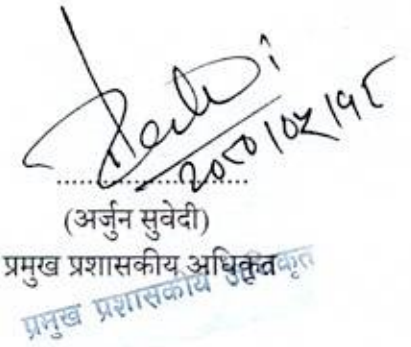 २०८०/०४/१८
(अर्जुन सुवेदी)
प्रमुख प्रशासकीय अधिकृत
प्रमुख प्रशासकीय अधिकृत